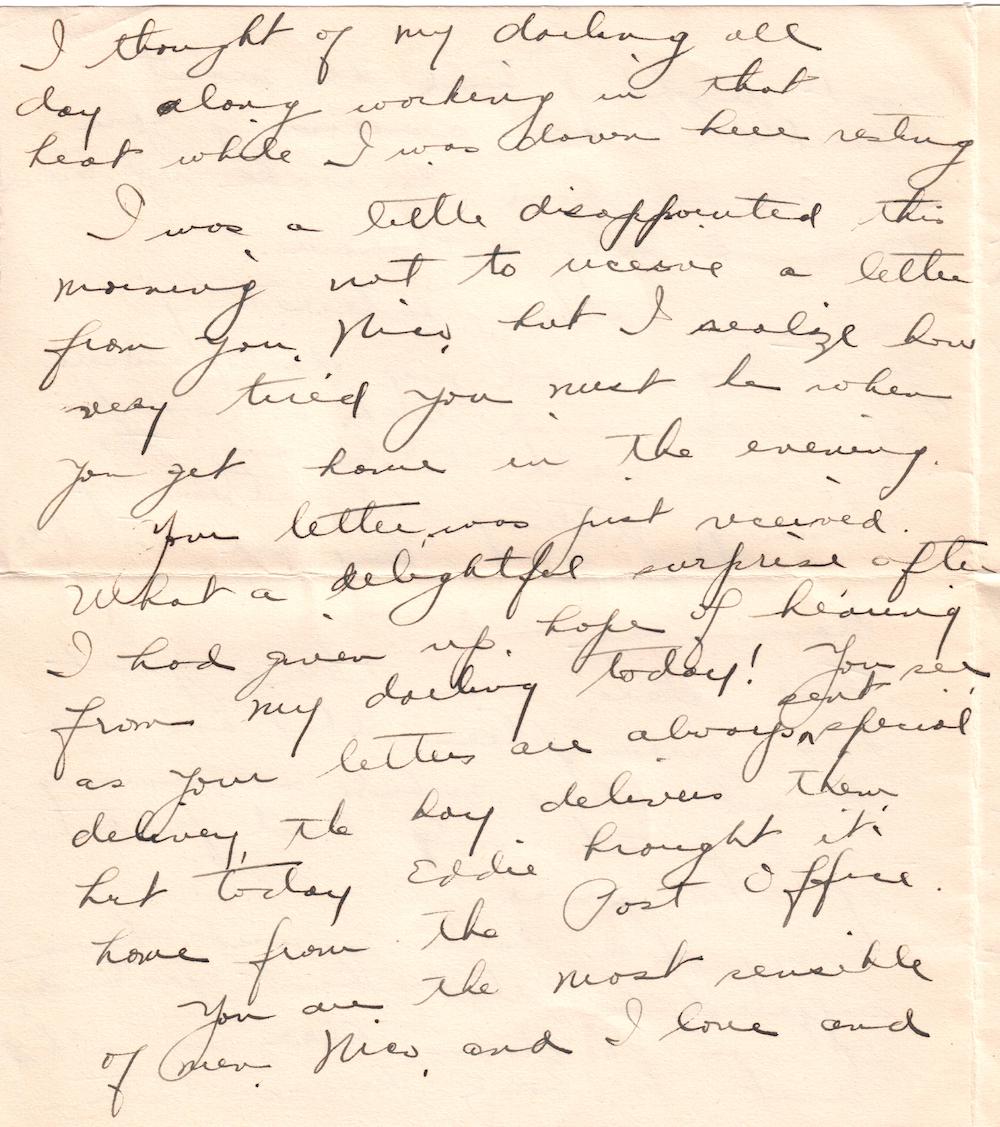 I thought of my darling all
day along working in that
heat while I was down here resting
I was a little disappointed this
morning not to receive a letter
from you, Nico, but I realize how
very tired you must be when
you get home in the evening.
Your letter was just received.
What a delightful surprise after
I had given up hope of hearing
from my darling today! You see,
sent
as your letters are always special
delivery, the boy delivers them,
but today Eddie brought it
home from the Post Office.
You are the most sensible
of men, Nico, and I love and